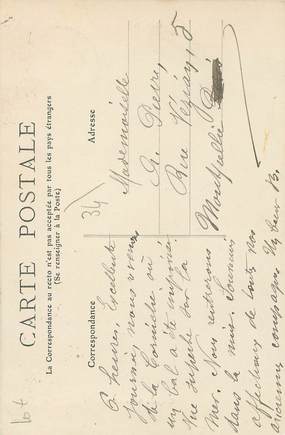 CARTE POSTALE
La Correspondance au recto n'est pas acceptée par tous les pays étrangers
(Se renseigner à la Poste)
Correspondance
Adresse
6 heures, Excellente
journée, nous venons
de la Corniche où
un bal a été improvisé
Vue superbe sur la
Mer. Nous rentrerons
dans la nuit. Souvenirs
affectueux de toutes vos
anciennes compagnes.
34
Mademoiselle
A. Pierre,
Rue 5
Montpellier
lot